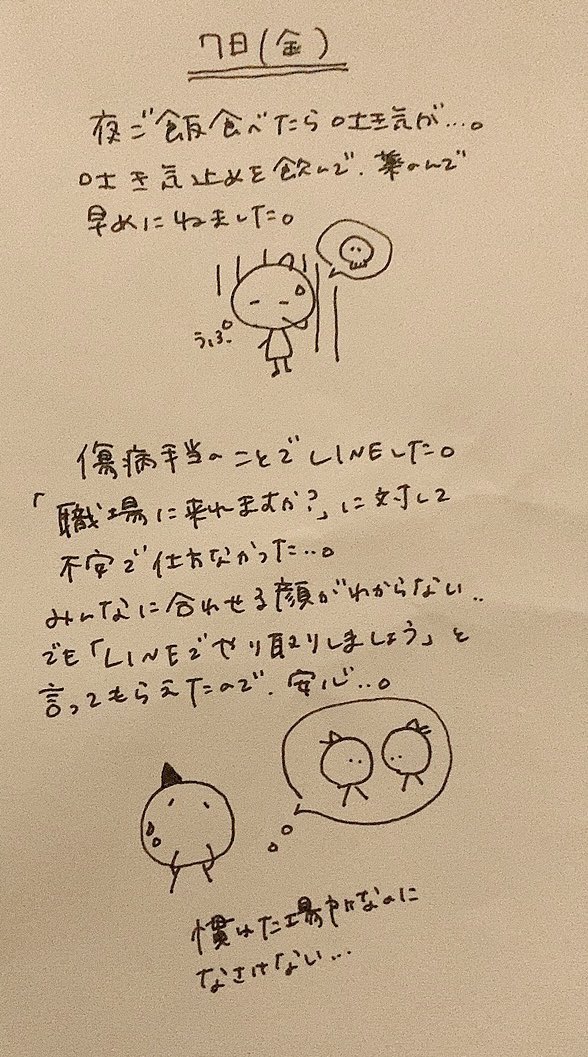 7日(金)
夜ご飯食べたら吐き気が…。
吐き気止めを飲んで、薬のんで
早めにねました。
うぷ。
傷病手当のことでLINEした。
「職場に来れますか?」に対して
不安で仕方なかった…。
みんなに合わせる顔がわからない..
でも「LINEでやり取りしましょう」と
言ってもらえたので、安心…。
慣れた場所なのに
なさけない…